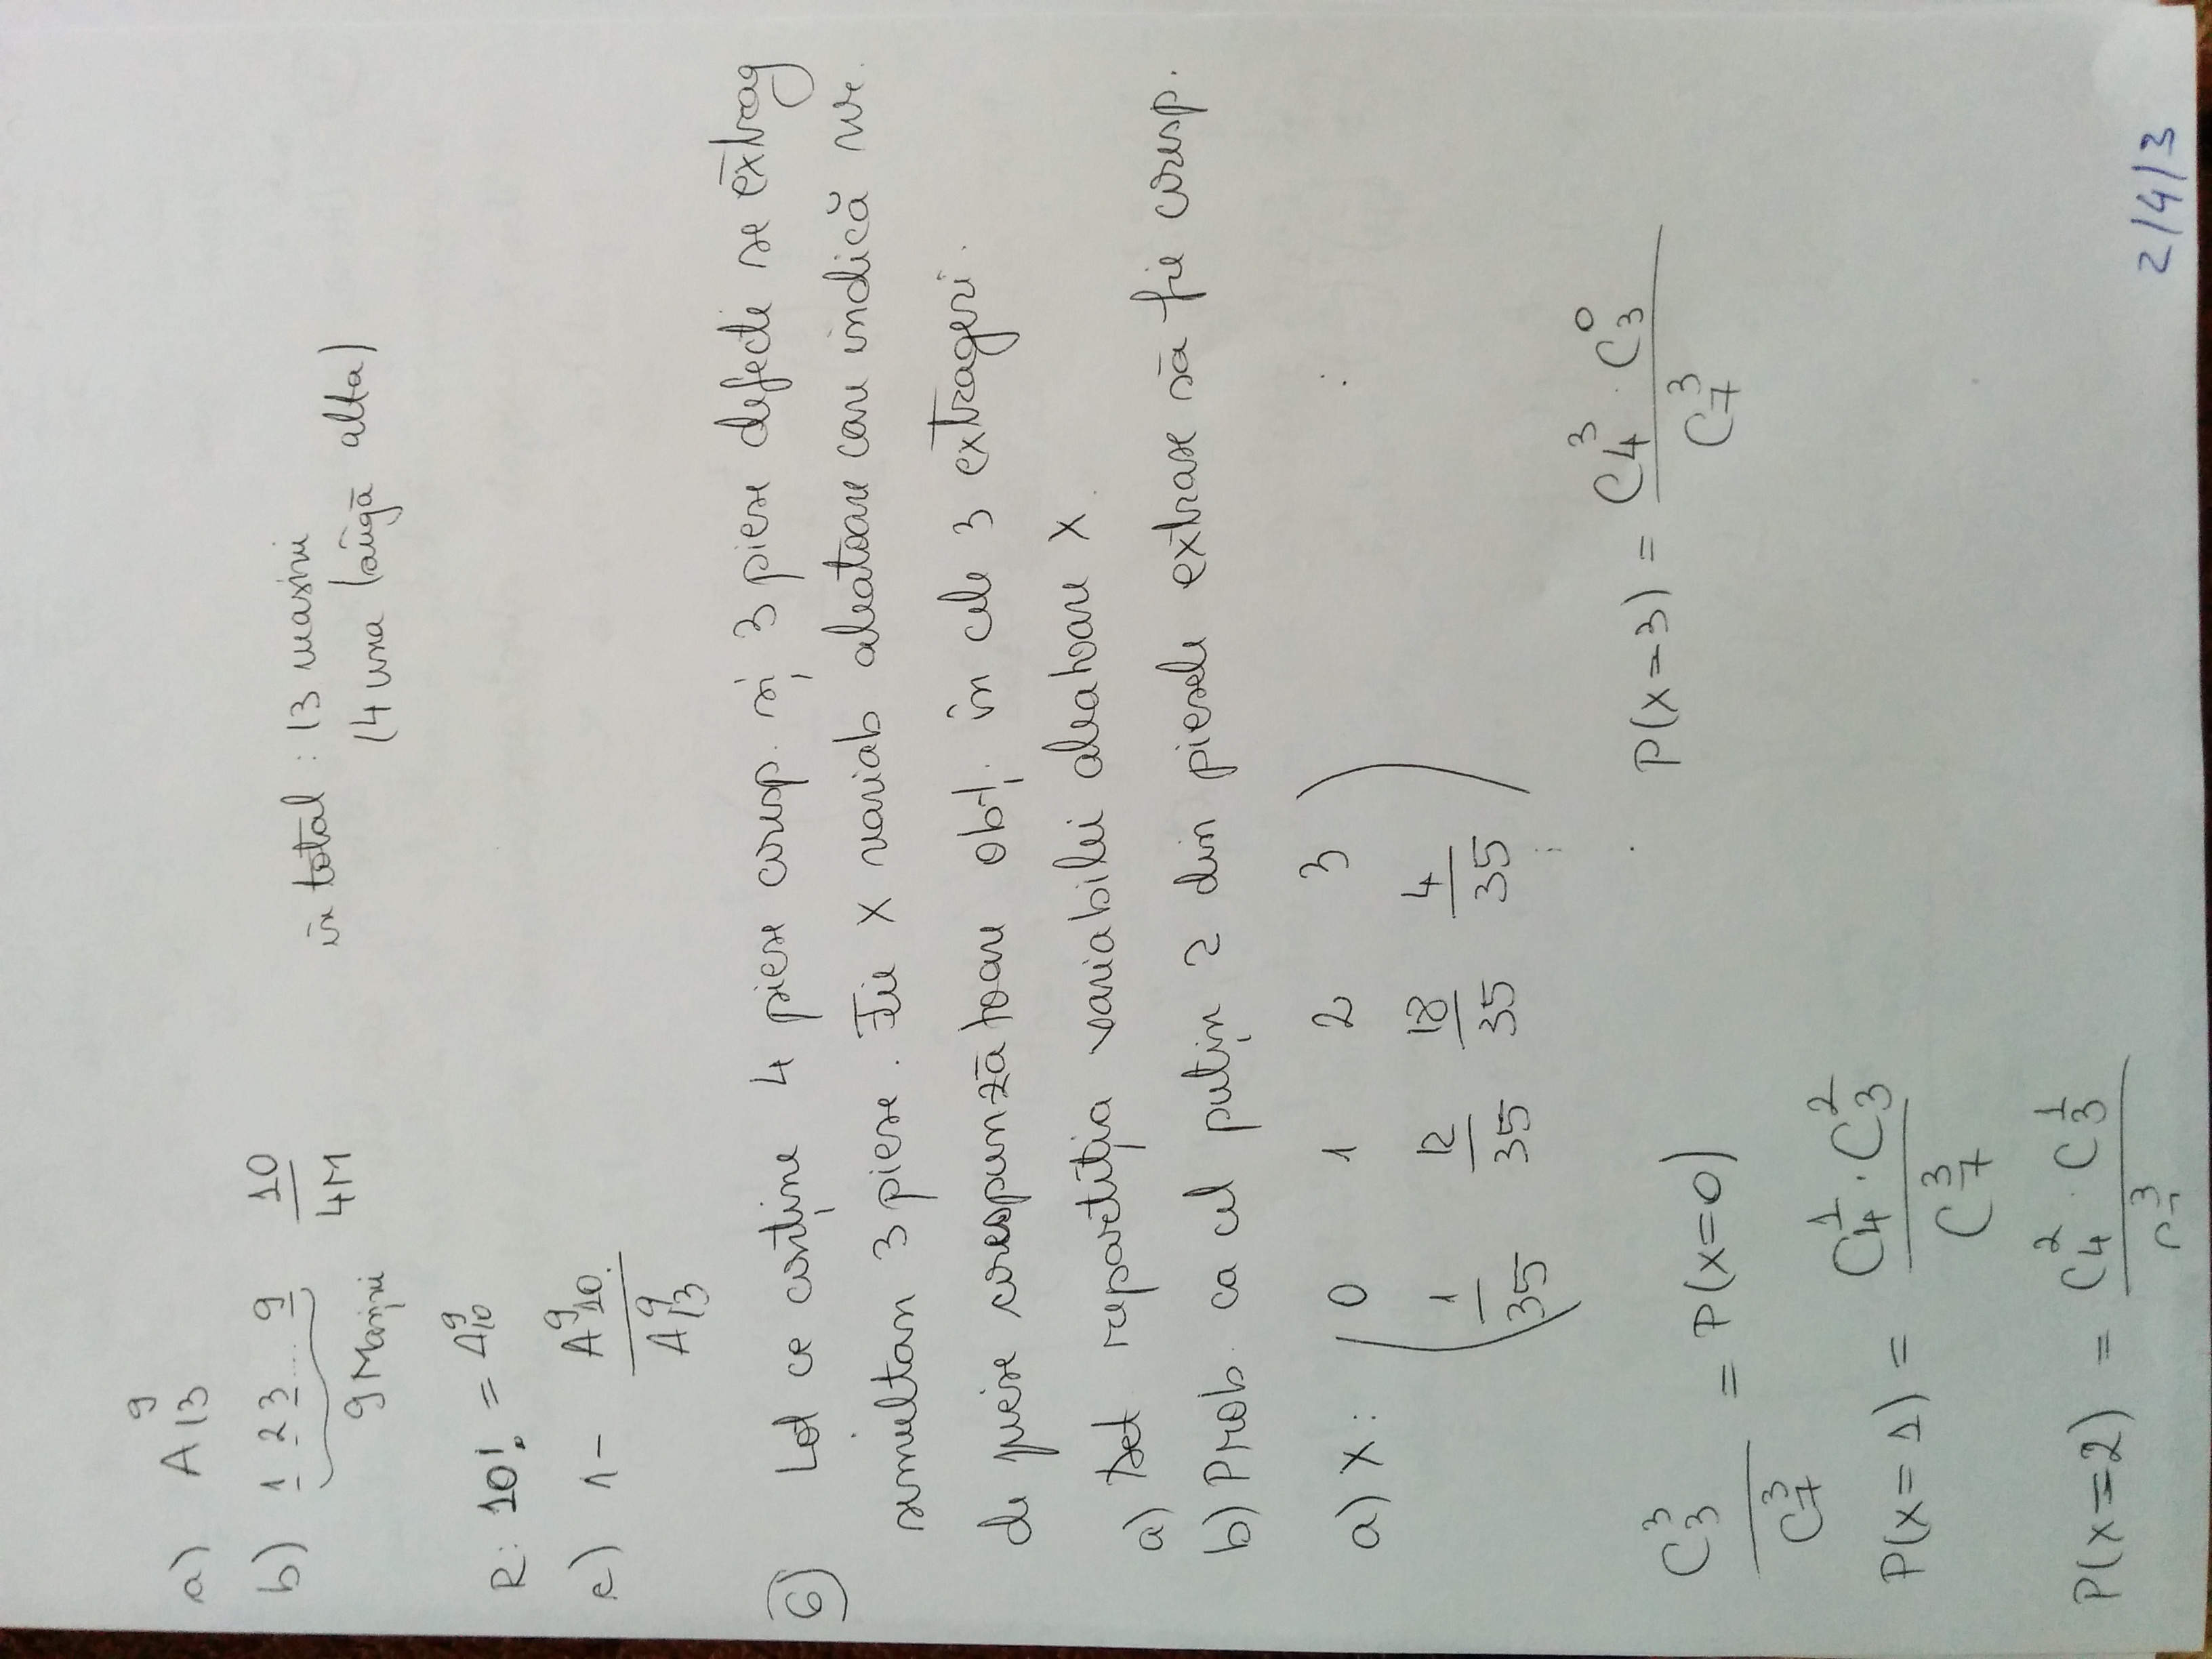 a) A₁₃⁹
b) 1 2 3 ... 9 10
9 Mașini 4M
în total : 13 masini
(4 una lângă alta)
R: 10! = A₁₀⁹
c) 1 - A₁₀⁹ / A₁₃⁹
6) Lot ce conține 4 piese coresp. și 3 piese defecte se extrag
simultan 3 piese. Fie X variab aleatoare care indică nr.
de piese corespunzătoare obț. în cele 3 extrageri.
a) Det repartiția variabilei aleatoare X.
b) Prob. ca cel puțin 2 din piesele extrase să fie coresp.
a) X: ( 0 1 2 3 )
1/35 12/35 18/35 4/35
C₃³ / C₇³ = P(x=0)
P(x=3) = C₄³ · C₃⁰ / C₇³
P(x=1) = C₄¹ · C₃² / C₇³
P(x=2) = C₄² · C₃¹ / C₇³
2/4/3